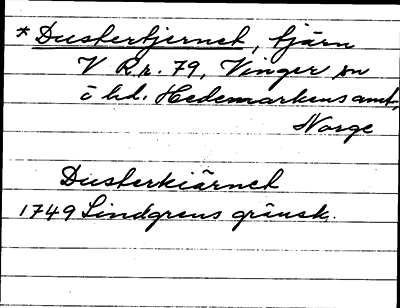 * Dustertjernet, tjärn
V R.r. 79, Vinger sn
i hd. Hedemarkens amt,
Norge
Dusterkiärnet
1749 Lindgrens gränsk.